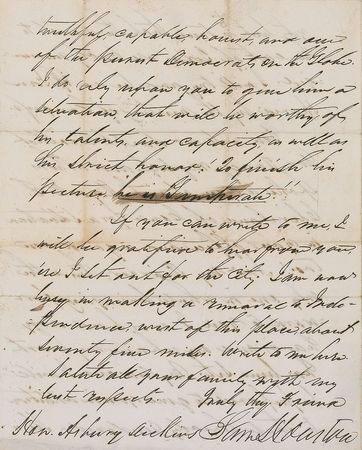 truthful, capable, honest, and one
of the purest Democrats on the Globe.
I do rely upon you to give him a
situation, that will be worthy of
his talents, and capacity, as well as
his strict honor. To finish his
picture he is Temperate!!
If you can write to me, I
will be gratified to hear from you,
ere I set out for the City. I am now
busy in making a removal to Inde-
pendence, west of this place about
seventy five miles. Write to me here.
Salute all your family with my
best respects. Truly thy Friend
Hon. Asbury Dickins Sam Houston